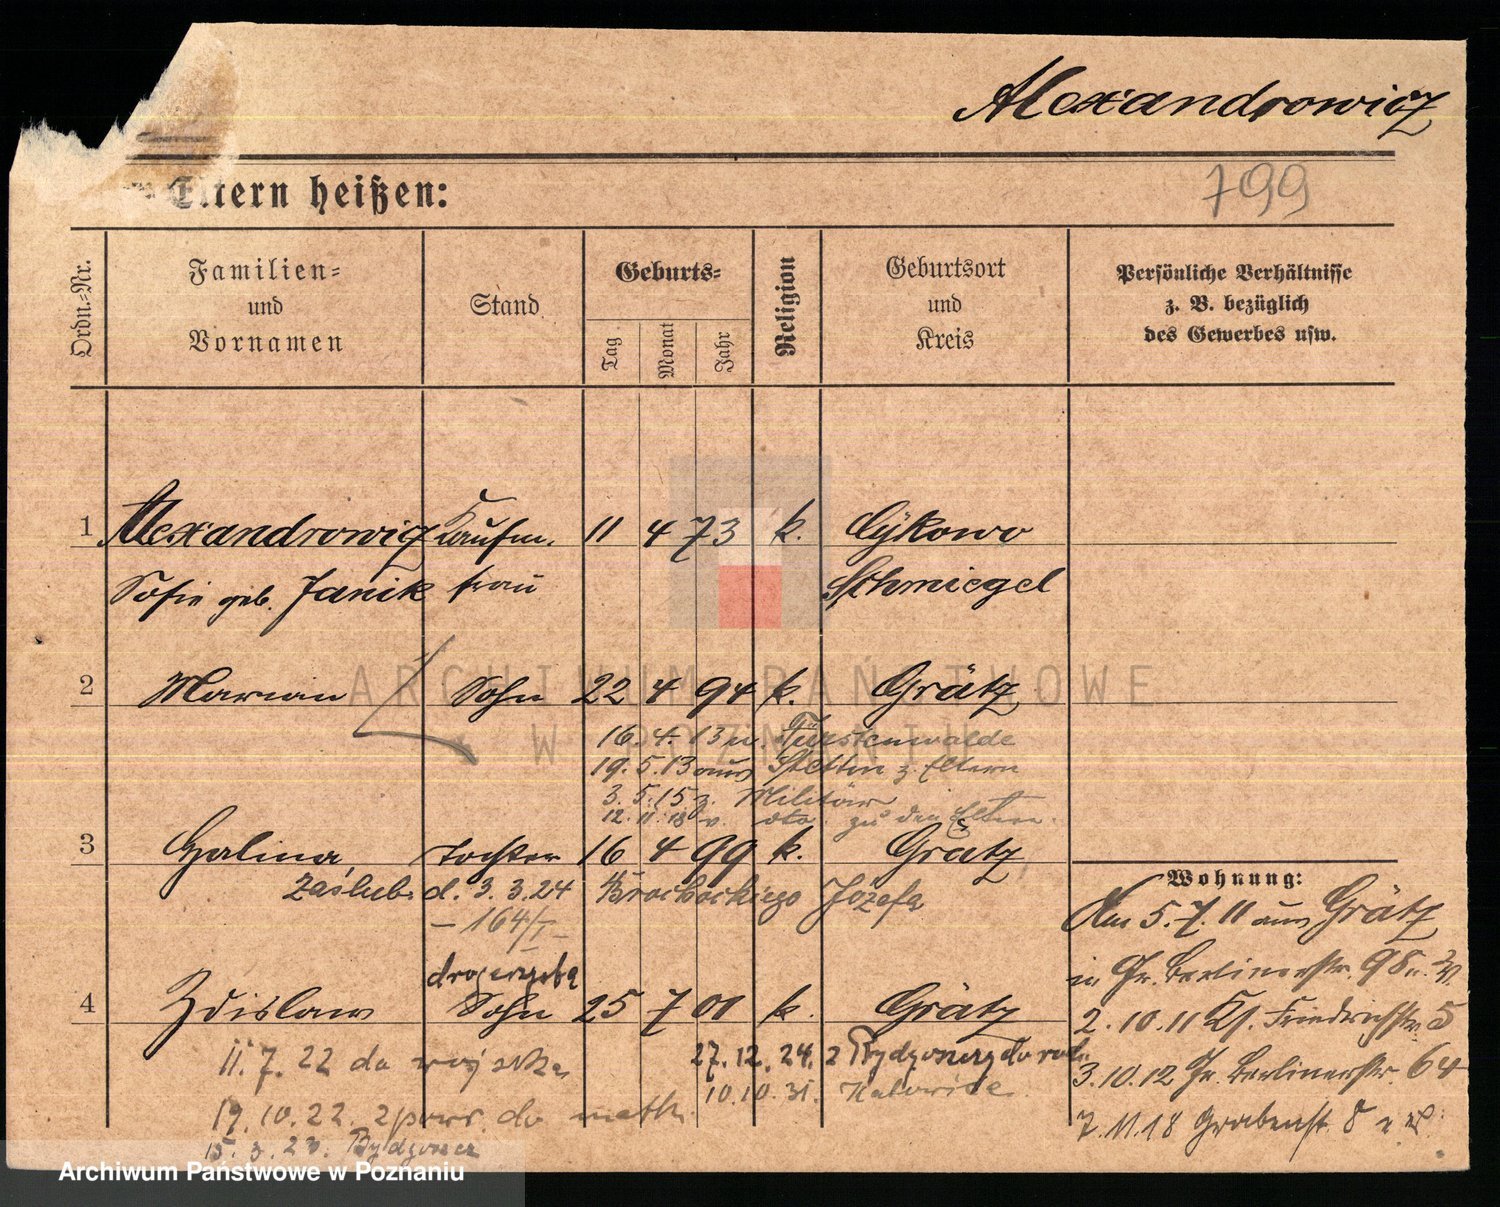 Alexandrowicz
Eltern heißen:
799
Ordn.-Nr.
Familien-
und
Vornamen
Stand
Geburts-
Tag
Monat
Jahr
Religion
Geburtsort
und
Kreis
Persönliche Verhältnisse
z. B. bezüglich
des Gewerbes usw.
1 Alexandrowicz Kaufm. 11 4 73 k. Cykowo
Sofie geb. Janik frau Schmiegel
2 Marian Sohn 22 4 94 k. Grätz
16. 4. 13 n. Fürstenwalde
19. 5. 13 aus Stettin z Eltern
3. 5. 15 z. Militär
12. 11. 18 v. dto. zu den Eltern.
3 Halina Tochter 16 4 99 k. Grätz
Zaślub. d. 3. 3. 24 Józefa
- 164/I -
drogerzysta
4 Zdislaw Sohn 25 7 01 k. Grätz
11. 7. 22 do wojska
27. 12. 24. z Bydgoszczy do rodz.
19. 10. 22. zpowr. do matk.
10. 10. 31. Katowice.
15. 3. 23. Bydgoszcz
Wohnung:
Am 5. 7. 11 aus Grätz
in Gr. Berlinerstr. 98
2. 10. 11 Kl. Friedrichstr. 5
3. 10. 12 Gr. Berlinerstr. 64
7. 11. 18 Grabenstr. 8
ARCHIWUM PAŃSTWOWE
W POZNANIU
Archiwum Państwowe w Poznaniu